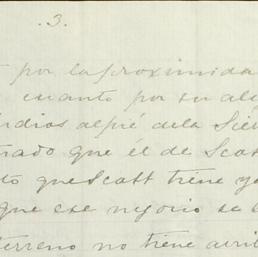 .3.
por la proximida
cuanto por su al
ndios al pié de la Sier
rado que él de Scot
to que Scott tiene ya
que ese negocio se
terreno no tiene arrib